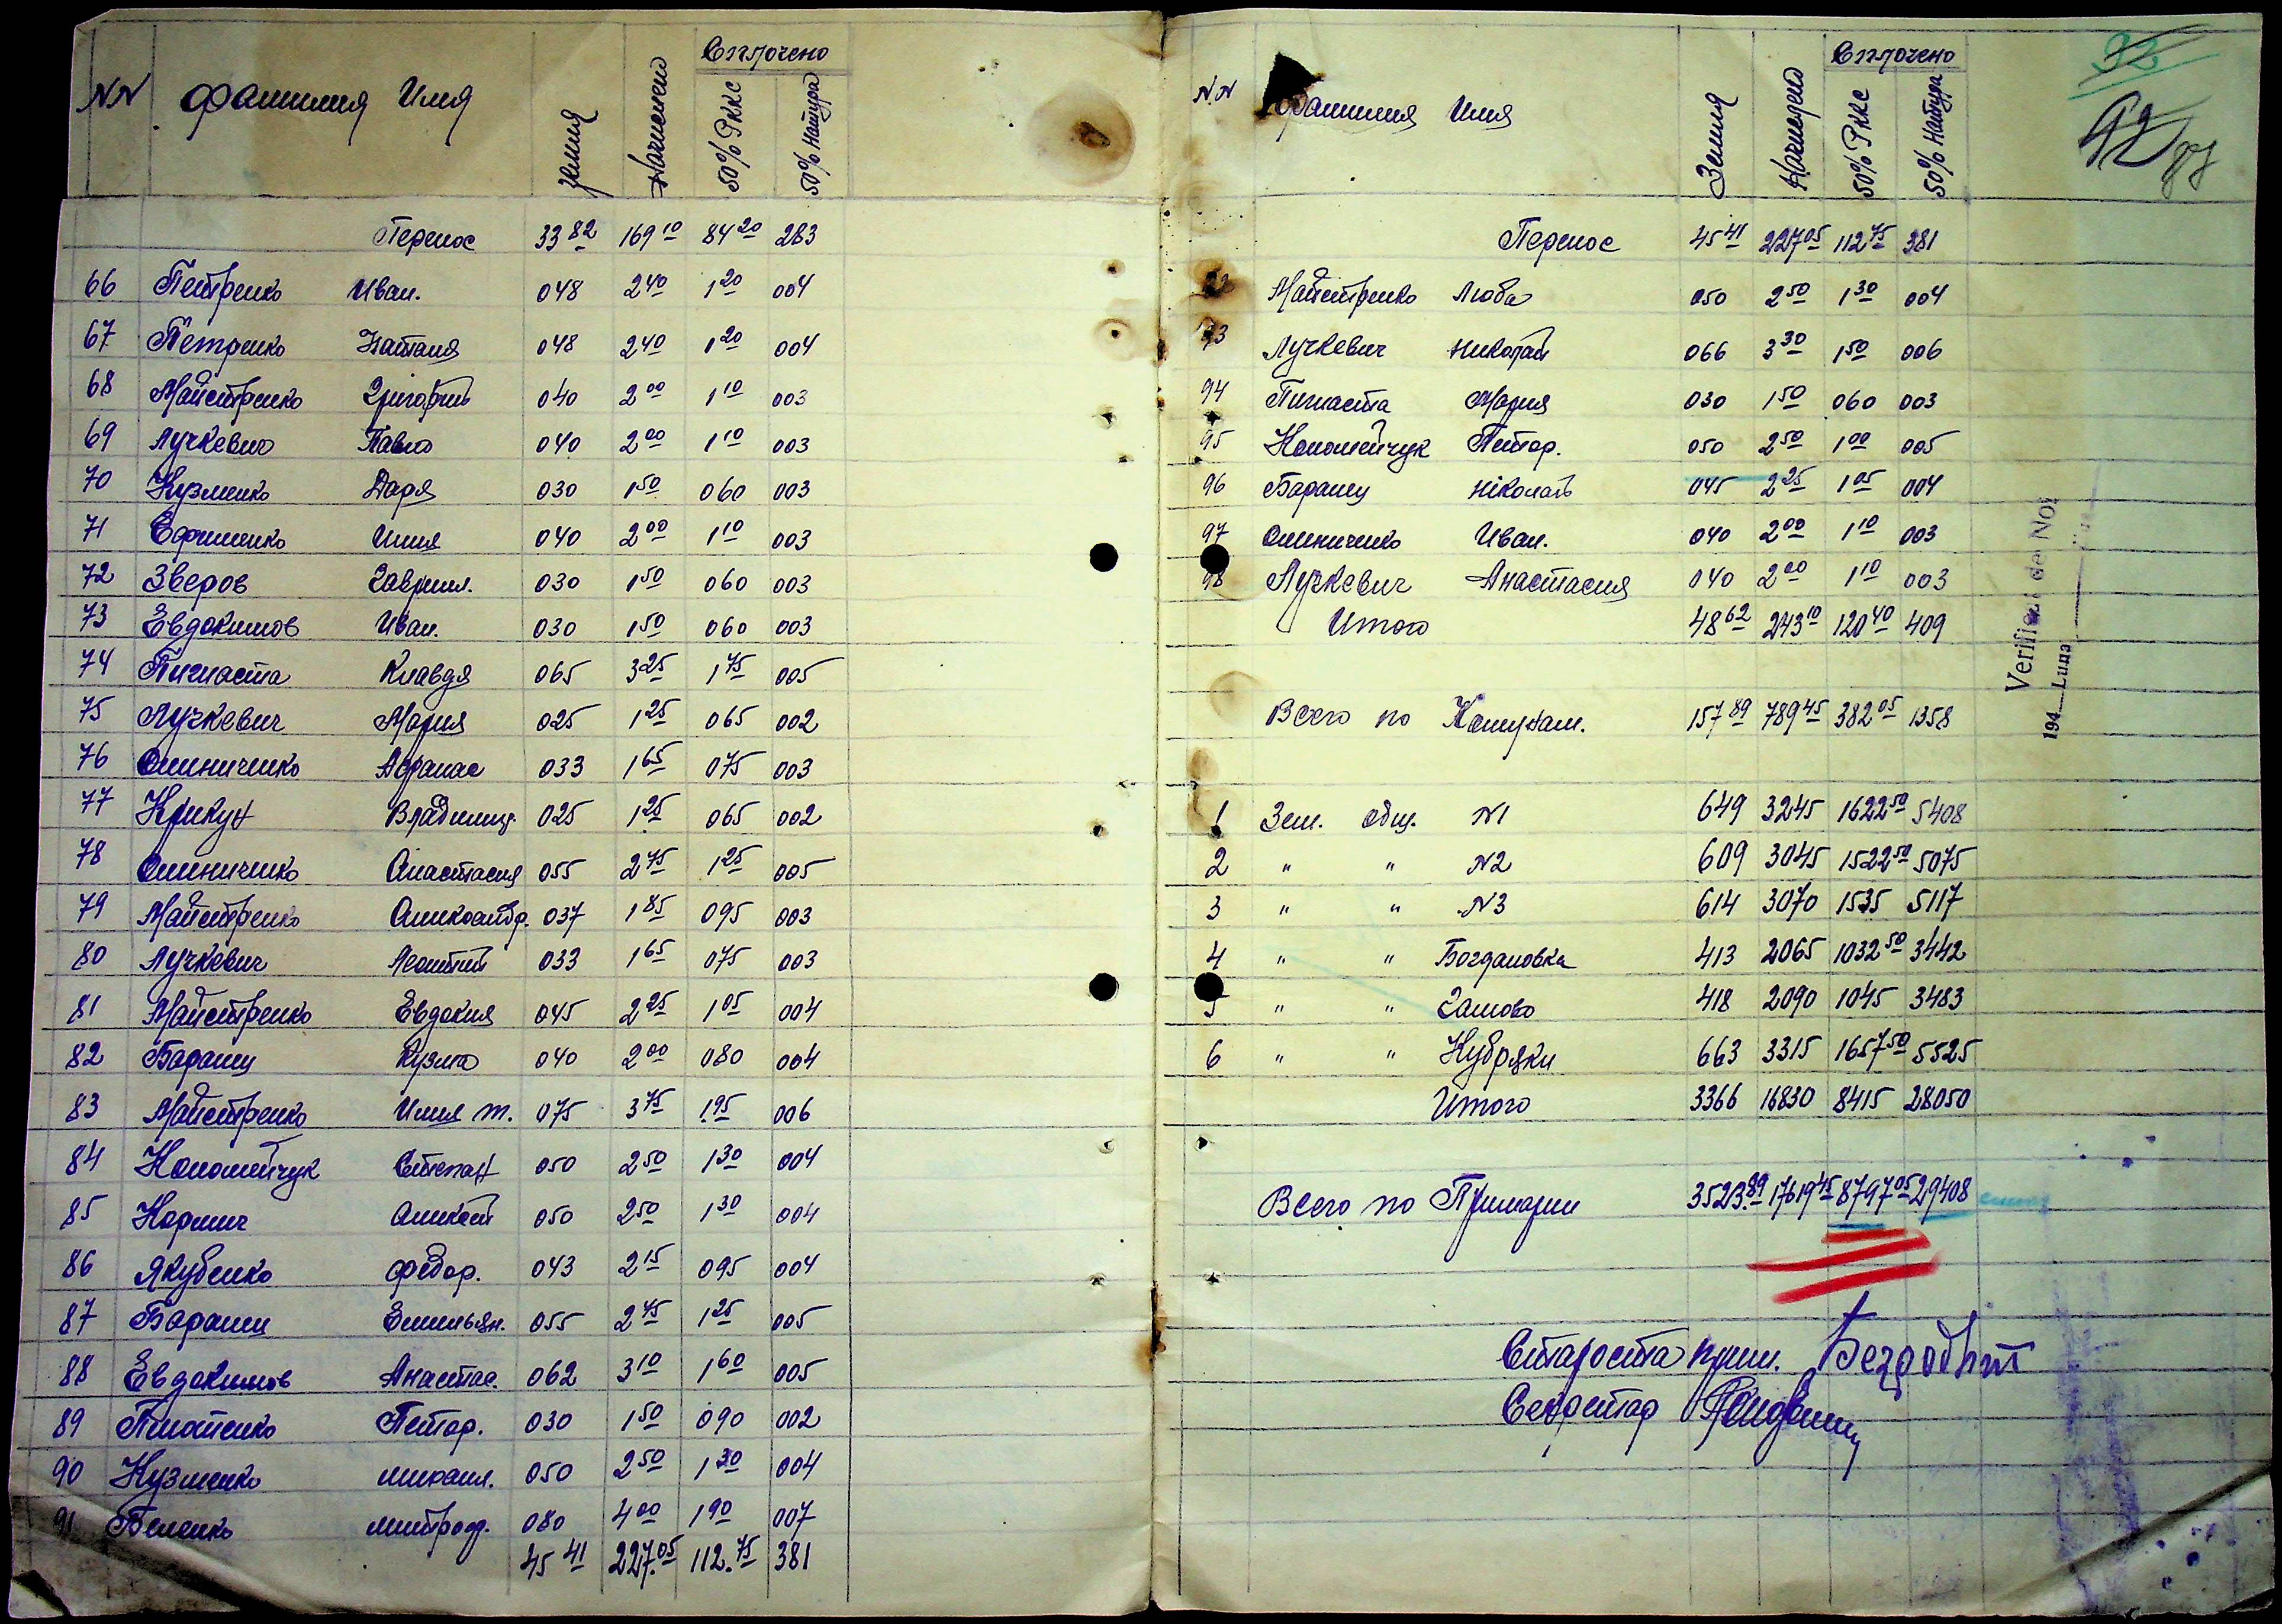 NN Фамилия Имя Земля Начислено Сплочено 50% Рккс 50% Натура
Перенос 33 82 169 10 84 20 283
66 Петренко Иван. 048 2 40 1 20 004
67 Петренко Наталия 048 2 40 1 20 004
68 Майстренко Григорий 040 2 00 1 10 003
69 Лучкевич Павло 040 2 00 1 10 003
70 Кузменко Даря 030 1 50 060 003
71 Ефименко Илия 040 2 00 1 10 003
72 Зверов Гаврил. 030 1 50 060 003
73 Евдокимов Иван. 030 1 50 060 003
74 Пигнаста Клавдя 065 3 25 1 75 005
75 Лучкевич Мария 025 1 25 065 002
76 Олиниченко Афанас 033 1 65 075 003
77 Крикун Владимир. 025 1 25 065 002
78 Олиниченко Анастасия 055 2 75 1 25 005
79 Майстренко Олександр. 037 1 85 095 003
80 Лучкевич Леонтий 033 1 65 075 003
81 Майстренко Евдокия 045 2 25 1 05 004
82 Баранец Кузма 040 2 00 080 004
83 Майстренко Илия т. 075 3 75 1 95 006
84 Коломейчук Степан 050 2 50 1 30 004
85 Олексей 050 2 50 1 30 004
86 Якубенко Федор. 043 2 15 095 004
87 Баранец Емильян. 055 2 75 1 25 005
88 Евдокимов Анастас. 062 3 10 1 60 005
89 Петор. 030 1 50 090 002
90 Кузменко михаил. 050 2 50 1 30 004
91 Беленко митроф. 080 4 00 1 90 007
45 41 227.05 112.75 381
92
92
NN Фамилия Имя Земля Начислено Сплочено 50% Рккс 50% Натура
Перенос 45 41 227 05 112 75 381
Майстренко Люба 050 2 50 1 30 004
93 Лучкевич Николай 066 3 30 1 50 006
94 Пигнаста Мария 030 1 50 060 003
95 Коломейчук Петор. 050 2 50 1 00 005
96 Баранец Ніколай 045 2 25 1 05 004
97 Олиниченко Иван. 040 2 00 1 10 003
98 Лучкевич Анастасия 040 2 00 1 10 003
Итого 48 62 243 10 120 40 409
Verificat de Noi
194 Luna
Всего по 157 89 789 45 382 05 1358
1 Зем. общ. N1 649 3245 1622 50 5408
2 " " N2 609 3045 1522 50 5075
3 " " N3 614 3070 1535 5117
4 " " Богдановка 413 2065 1032 50 3442
5 " " Галово 418 2090 1045 3483
6 " " Кубряки 663 3315 1657 50 5525
Итого 3366 16830 8415 28050
Всего по Примарии 3523.89 17619 45 8797 05 29408
Староста прим.
Секретар